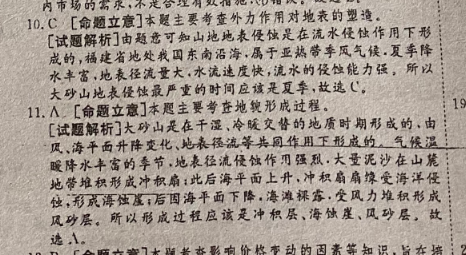 内市场的需求,不是合理有效措施
10. C [命题立意]本题主要考查外力作用对地表的塑造。
[试题解析]由题意可知山地地表侵蚀是在流水侵蚀作用下形
成的,福建省地处我国东南沿海,属于亚热带季风气候,夏季降
水丰富,地表径流量大,水流速度快,流水的侵蚀能力强。所以
大砂山地表侵蚀最严重的时间应该是夏季,故选 C。
11. A [命题立意]本题主要考查地貌形成过程。
[试题解析]大砂山是在干湿、冷暖交替的地质时期形成的,由
风、海平面升降变化、地表径流等共同作用下形成的。气候温
暖降水丰富的季节,地表径流侵蚀作用强烈,大量泥沙在山麓
地带堆积形成冲积扇;此后海平面上升,冲积扇扇缘受海洋侵
蚀,形成海蚀崖;后因海平面下降,海滩裸露,受风力堆积形成
风砂层。所以形成过程应该是冲积层、海蚀崖、风砂层。故
选 A。
本题考查影响价格变动的因素等知识,旨在培
19